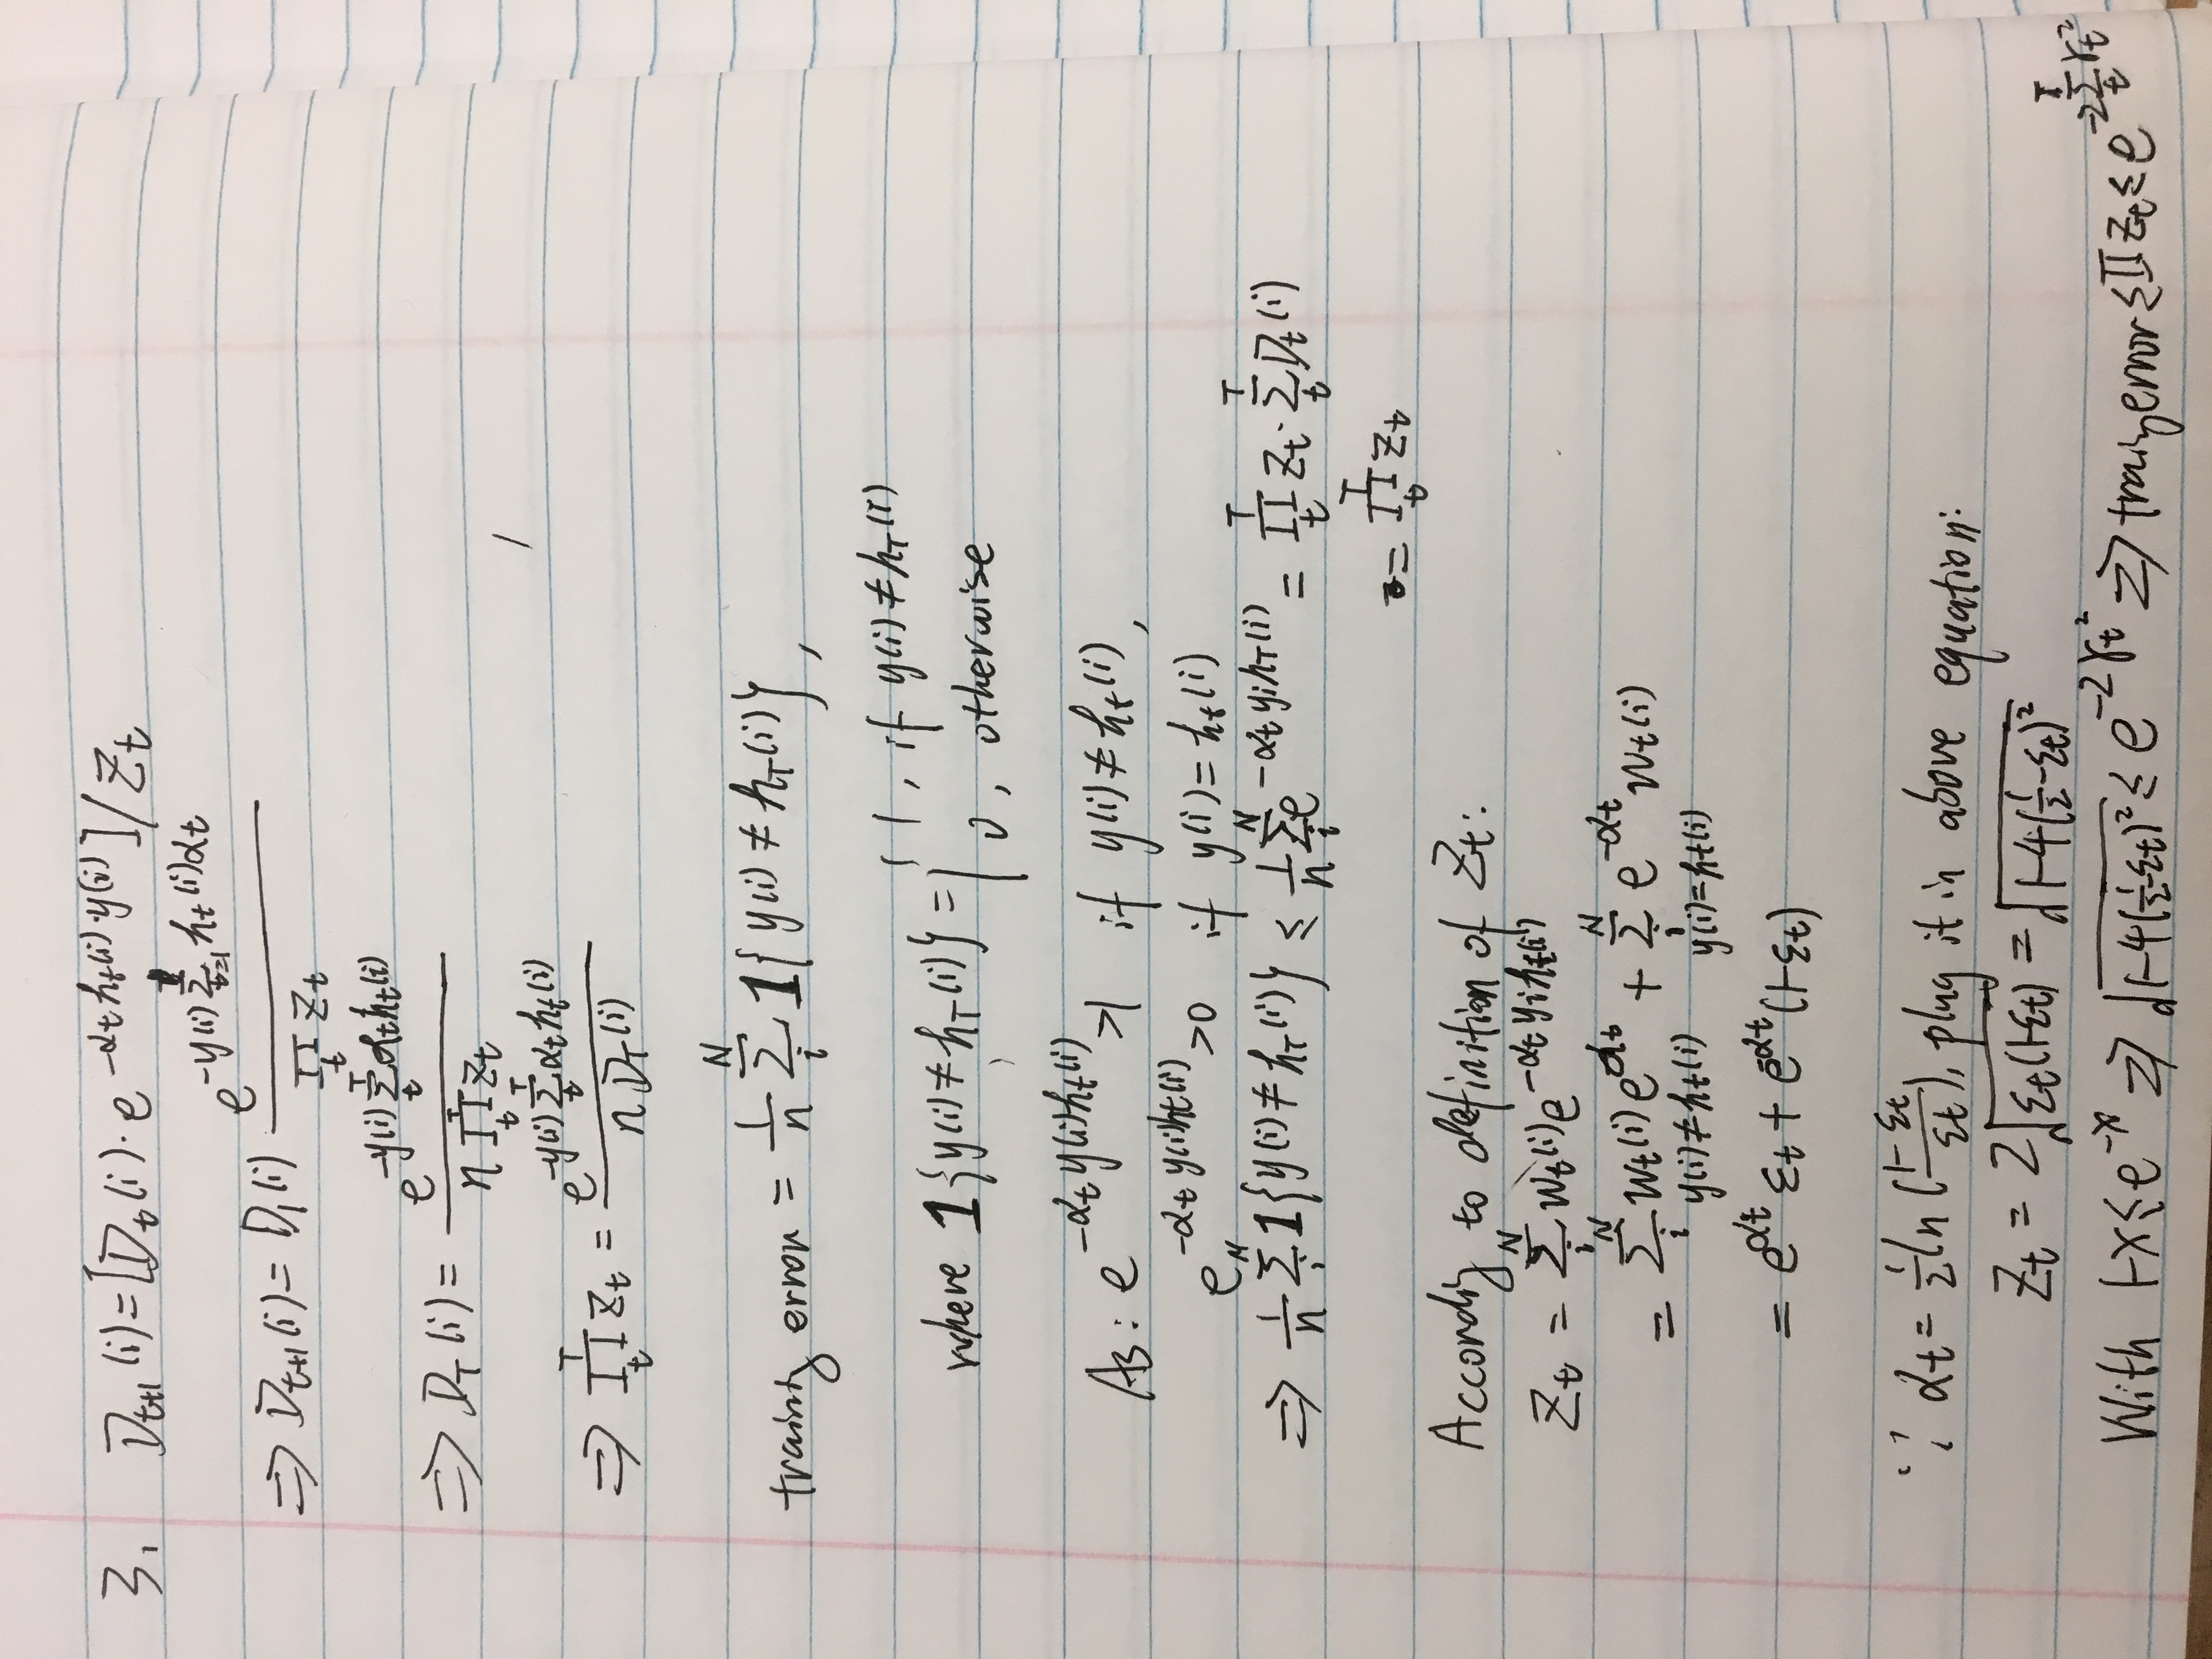 3. D_{t+1}(i) = [D_t(i) · e^{-α_t h_t(i)·y(i)}] / Z_t
⇒ D_{t+1}(i) = D_1(i) e^{-y(i) Σ_{t=1} h_t(i) α_t} / ∏_t Z_t
⇒ D_T(i) = e^{-y(i) Σ_t^T α_t h_t(i)} / n ∏_t^T Z_t
⇒ ∏_t^T Z_t = e^{-y(i) Σ_t^T α_t h_t(i)} / n D_T(i)
training error = 1/n Σ_i^N 1{y(i) ≠ h_T(i)},
where 1{y(i) ≠ h_T(i)} = { 1, if y(i) ≠ h_T(i)
0, otherwise
As: e^{-α_t y(i) h_t(i)} > 1 if y(i) ≠ h_t(i),
e^{-α_t y(i) h_t(i)} > 0 if y(i) = h_t(i)
⇒ 1/n Σ_i^N 1{y(i) ≠ h_T(i)} ≤ 1/n Σ_i^N e^{-α_t y_i h_T(i)} = ∏_t^T Z_t · Σ_t^T D_t(i)
= ∏_t^T Z_t
According to definition of Z_t:
Z_t = Σ_i^N W_t(i) e^{-α_t y_i h_t(i)}
= Σ_i^N W_t(i) e^{α_t} + Σ_i^N e^{-α_t} W_t(i)
y(i) ≠ h_t(i) y(i) = h_t(i)
= e^{α_t} ε_t + e^{-α_t} (1-ε_t)
∵ α_t = 1/2 ln (1-ε_t / ε_t), plug it in above equation:
Z_t = 2√(ε_t(1-ε_t)) = √(1-4(1/2-ε_t)^2)
With 1-x ≤ e^{-x} ⇒ √(1-4(1/2-ε_t)^2) ≤ e^{-2γ_t^2} ⇒ training error ≤ ∏ Z_t ≤ e^{-2 Σ_t^T γ_t^2}